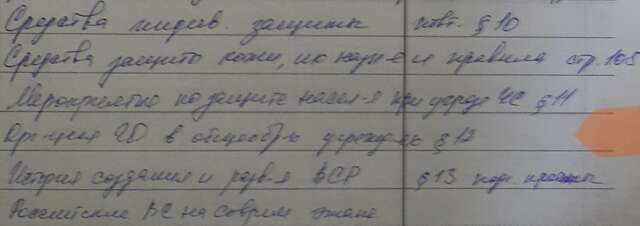 Средства индив. защиты повт. § 10
Средства защиты кожи, их назн-е и правила стр. 105
Мероприятия по защите насел-я при угрозе ЧС § 11
Орг-ция ГО в общеобр-х учрежд-ях § 12
История создания и разв-я ВСР § 13
Российские ВС на соврем этапе